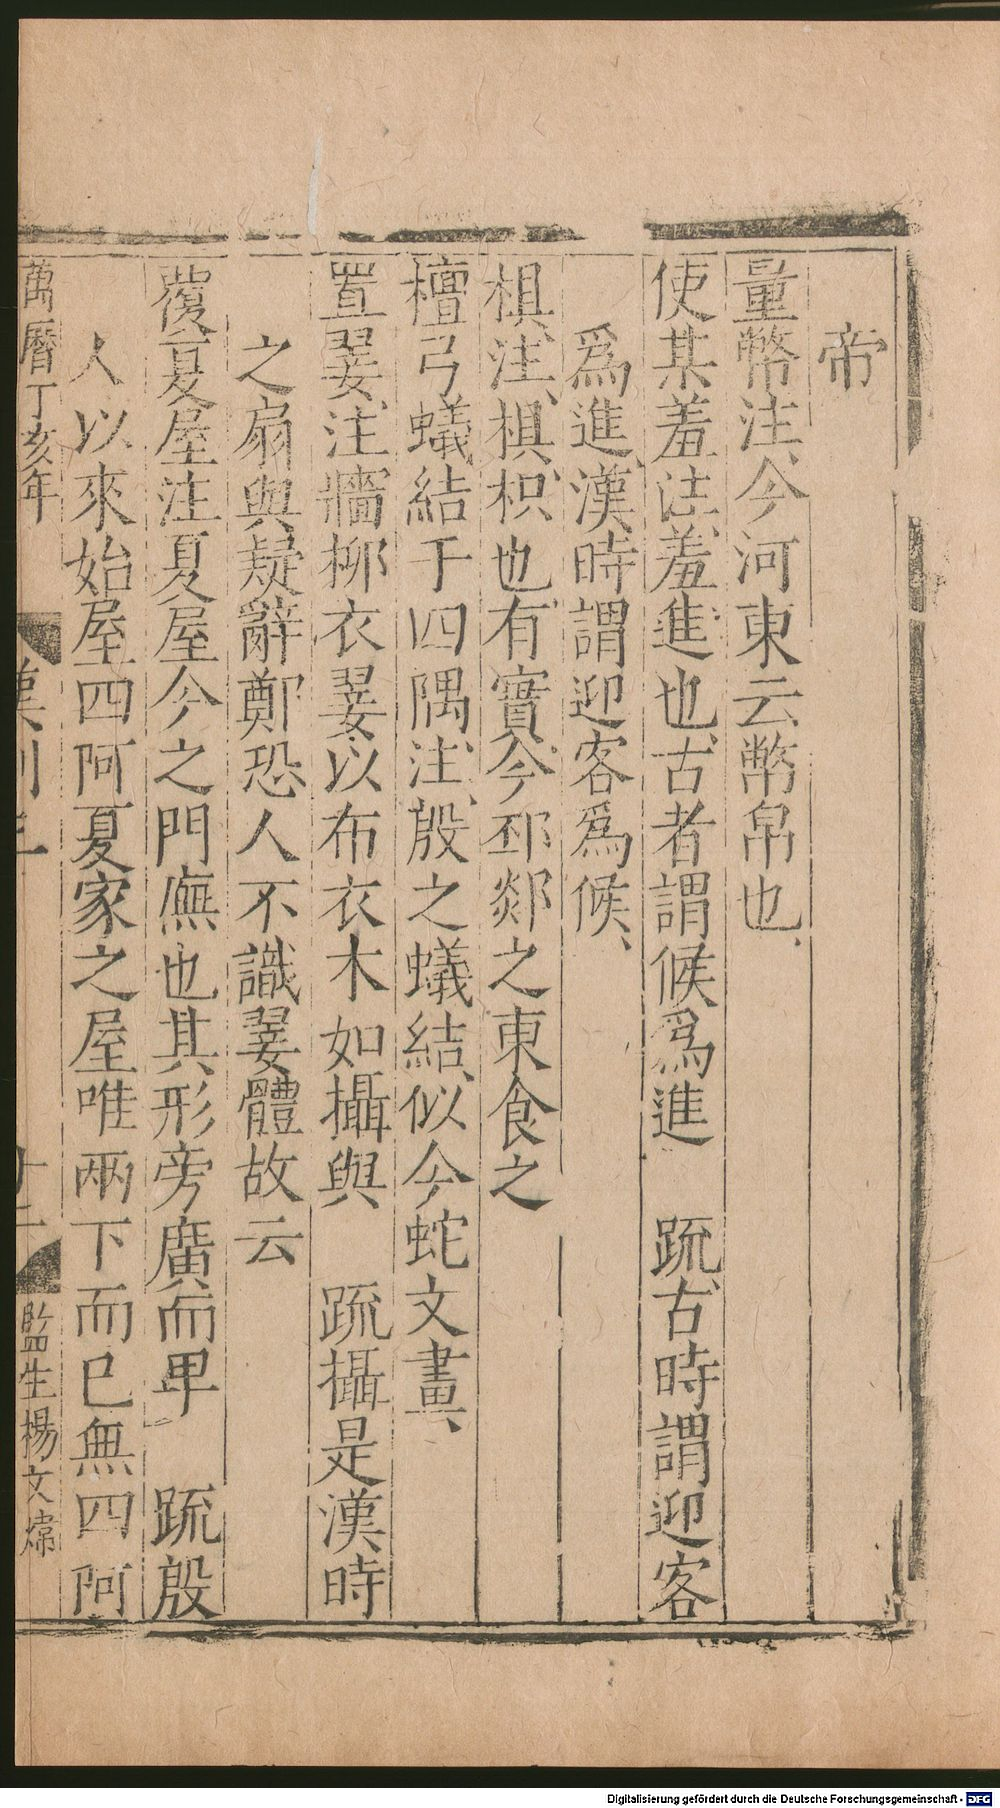 帝
量幣注、今河東云幣帛也、
使某羞注、羞進也、古者謂候爲進　疏、古時謂迎客
爲進、漢時謂迎客爲候、
椇、注、椇、枳也、有實、今邳郯之東食之
檀弓蟻結于四隅、注、殷之蟻結、似今蛇文畫、
置翣、注、牆柳衣翣以布衣木如攝與　疏攝是漢時
之扇與疑辭鄭恐人不識翣體故云
覆夏屋注夏屋今之門廡也其形旁廣而卑　疏殷
人以來始屋四阿夏家之屋唯兩下而已無四阿
萬曆丁亥年
十二
監生楊文煒
Digitalisierung gefördert durch die Deutsche Forschungsgemeinschaft - DFG